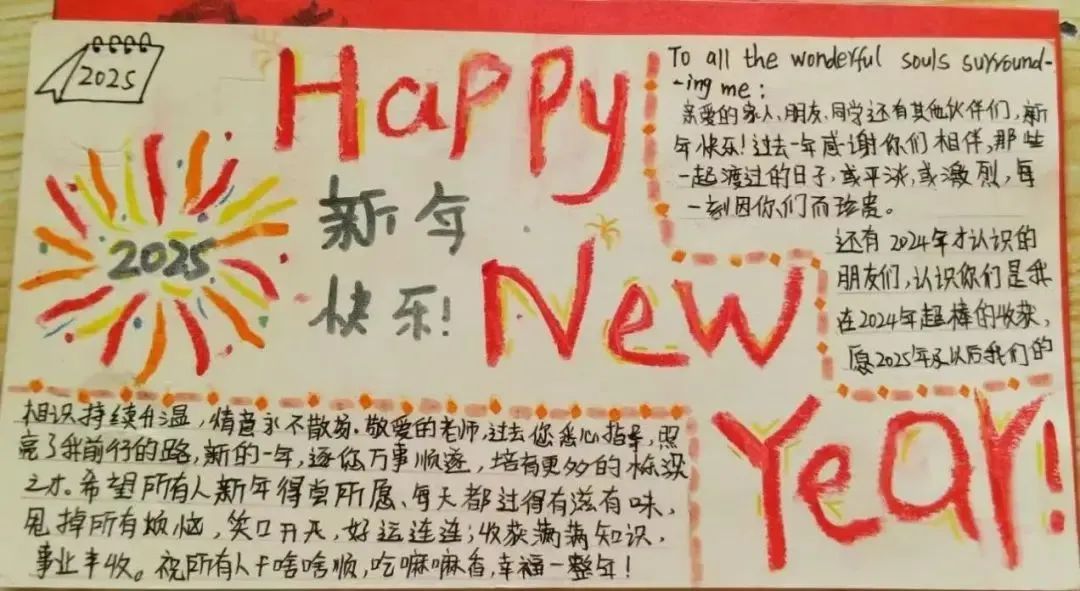 2025
2025
Happy
新年
快乐!
New
Year!
To all the wonderful souls surround-
-ing me:
亲爱的家人、朋友、同学还有其他伙伴们,新
年快乐!过去一年感谢你们相伴,那些
一起渡过的日子,或平淡,或激烈,每
一刻因你们而珍贵。
还有2024年才认识的
朋友们,认识你们是我
在2024年超棒的收获,
愿2025年及以后我们的
相识持续升温,情意永不散场。敬爱的老师,过去您悉心指导,照
亮了我前行的路,新的一年,逐您万事顺遂,培育更多的栋梁
之才。希望所有人新年得尝所愿、每天都过得有滋有味,
甩掉所有烦恼,笑口开天,好运连连;收获满满知识,
事业丰收。祝所有人干啥啥顺,吃嘛嘛香,幸福一整年!